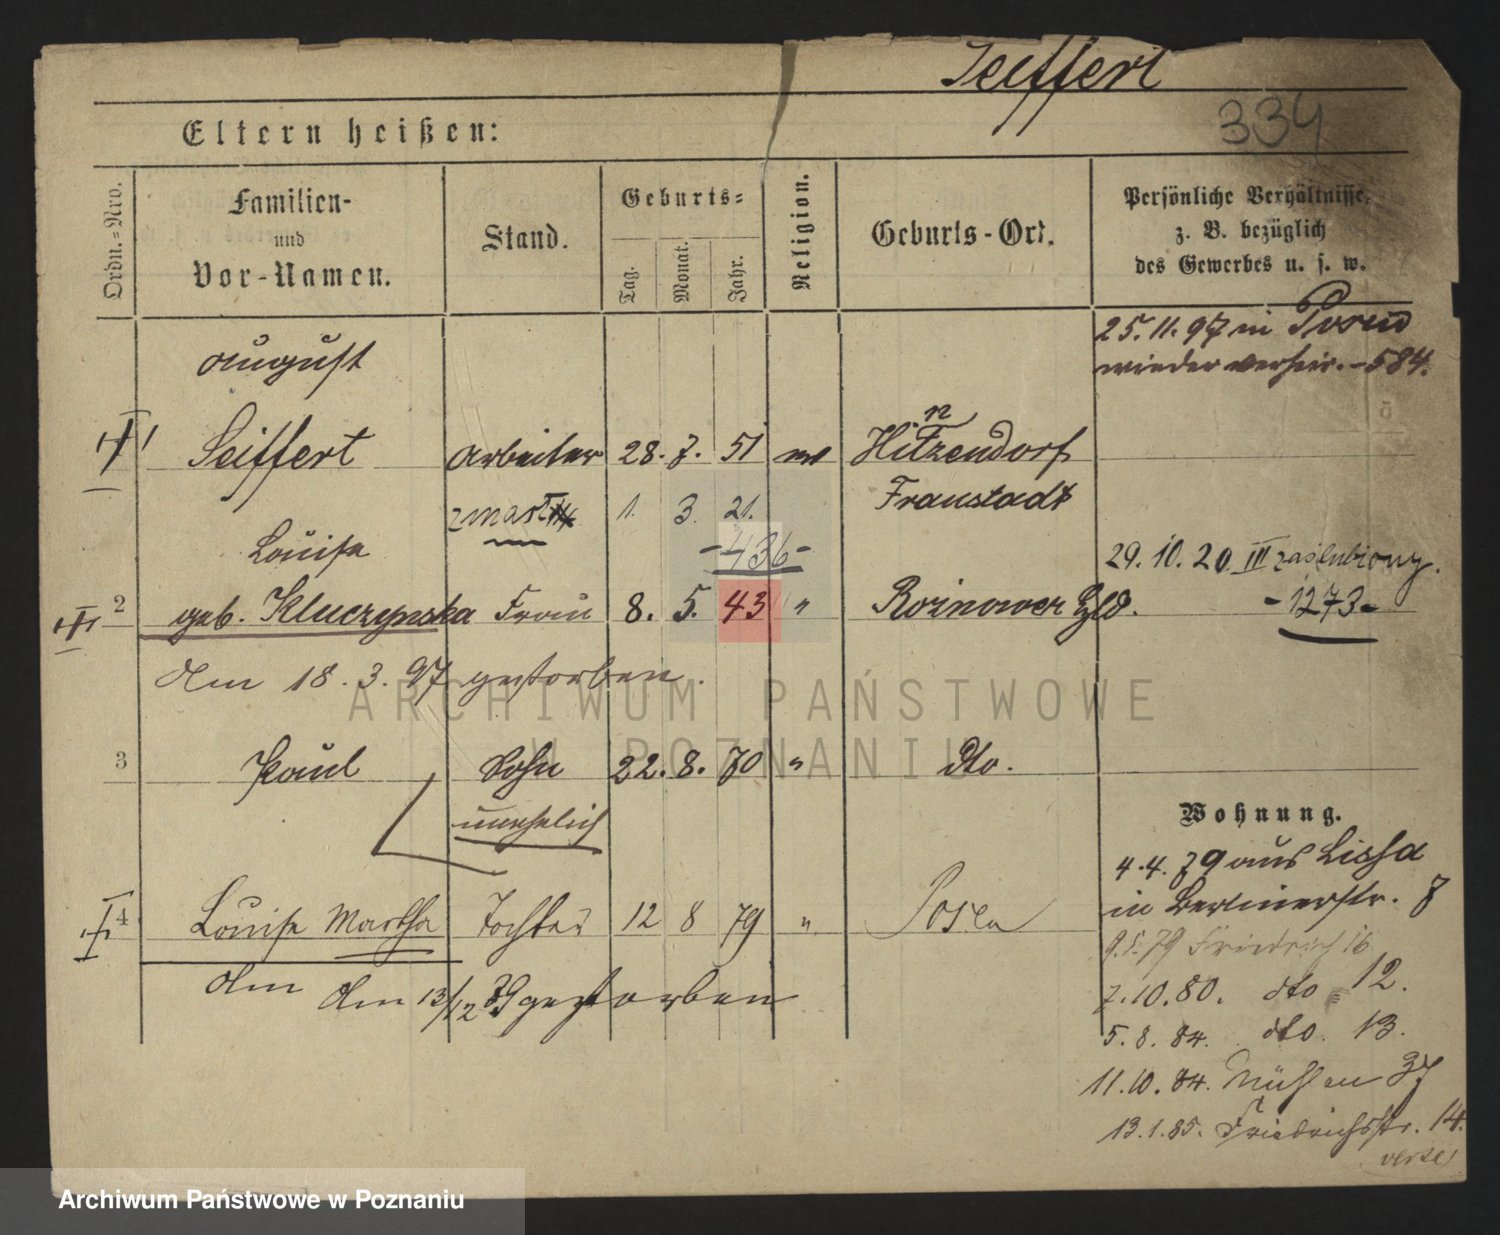 Seiffert
334
Eltern heißen:
Ordn.=Nro.
Familien-
und
Vor-Namen.
Stand.
Geburts=
Tag.
Monat.
Jahr.
Religion.
Geburts-Ort.
Persönliche Verhältnisse,
z. B. bezüglich
des Gewerbes u. s. w.
25. 11. 97 in Posen
wieder verheir. - 584.
August
Seiffert Arbeiter 28. 7. 51 Hitzendorf
Fraustadt
zmarł 1. 3. 21.
-436-
Louise
29. 10. 20. III zaślubiony.
-1273-
2 geb. Kluczynska Frau 8. 5. 43 " Roznower Hld.
Am 18. 3. 97 gestorben.
3 Paul Sohn 22. 8. 70 " dto.
unehelich
Wohnung.
4. 4. 79 aus Lissa
in Berlinerstr. 8
4 Louise Martha Tochter 12 8 79 " Posen
9. 5. 79 Friedrich 16
Am Am 13/12 79 gestorben
7. 10. 80. dto 12.
5. 8. 84. dto. 13.
11. 10. 84. Mühlen 37
13. 1. 85. Friedrichsstr. 14.
verte
ARCHIWUM PAŃSTWOWE
W POZNANIU
Archiwum Państwowe w Poznaniu